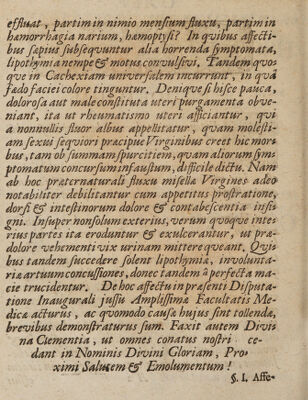 effluat, partim in nimio mensium fluxu, partim in
hæmorrhagia narium, hæmoptysi? In qvibus affecti-
bus sæpius subseqvuntur alia horrenda symptomata,
lipothymia nempe & motus convulsivi. Tandem qvos-
qve in Cachexiam universalem incurrunt, in qvâ
fœdo faciei colore tinguntur. Deniqve si hisce pauca,
dolorosa aut male constituta uteri purgamenta obve-
niant, ita ut rheumatismo uteri afficiantur, qvi
a nonnullis fluor albus appellitatur, qvam molesti-
am sexui seqviori præcipue Virginibus creet hic mor-
bus, tam ob summam spurcitiem, qvam aliorum sym-
ptomatum concursum infaustum, difficile dictu. Nam
ab hoc præternaturali fluxu misellæ Virgines adeo
notabiliter debilitantur cum appetitus prostratione,
dorsi & intestinorum dolore & contabescentiâ insi-
gni. Insuper non solum exterius, verum qvoqve inte-
rius partes ita eroduntur & exulcerantur, ut præ
dolore vehementi vix urinam mittere qveant. Qvi-
bus tandem succedere solent lipothymiæ, involunta-
riæ artuum concussiones, donec tandem â perfectâ ma-
cie trucidentur. De hoc affectu in præsenti Disputa-
tione Inaugurali jussu Amplissimæ Facultatis Me-
dicæ acturus, ac qvomodo causæ hujus sint tollendæ,
brevibus demonstraturus sum. Faxit autem Divi-
na Clementia, ut omnes conatus nostri ce-
dant in Nominis Divini Gloriam, Pro-
ximi Salutem & Emolumentum!
§. I. Affe-